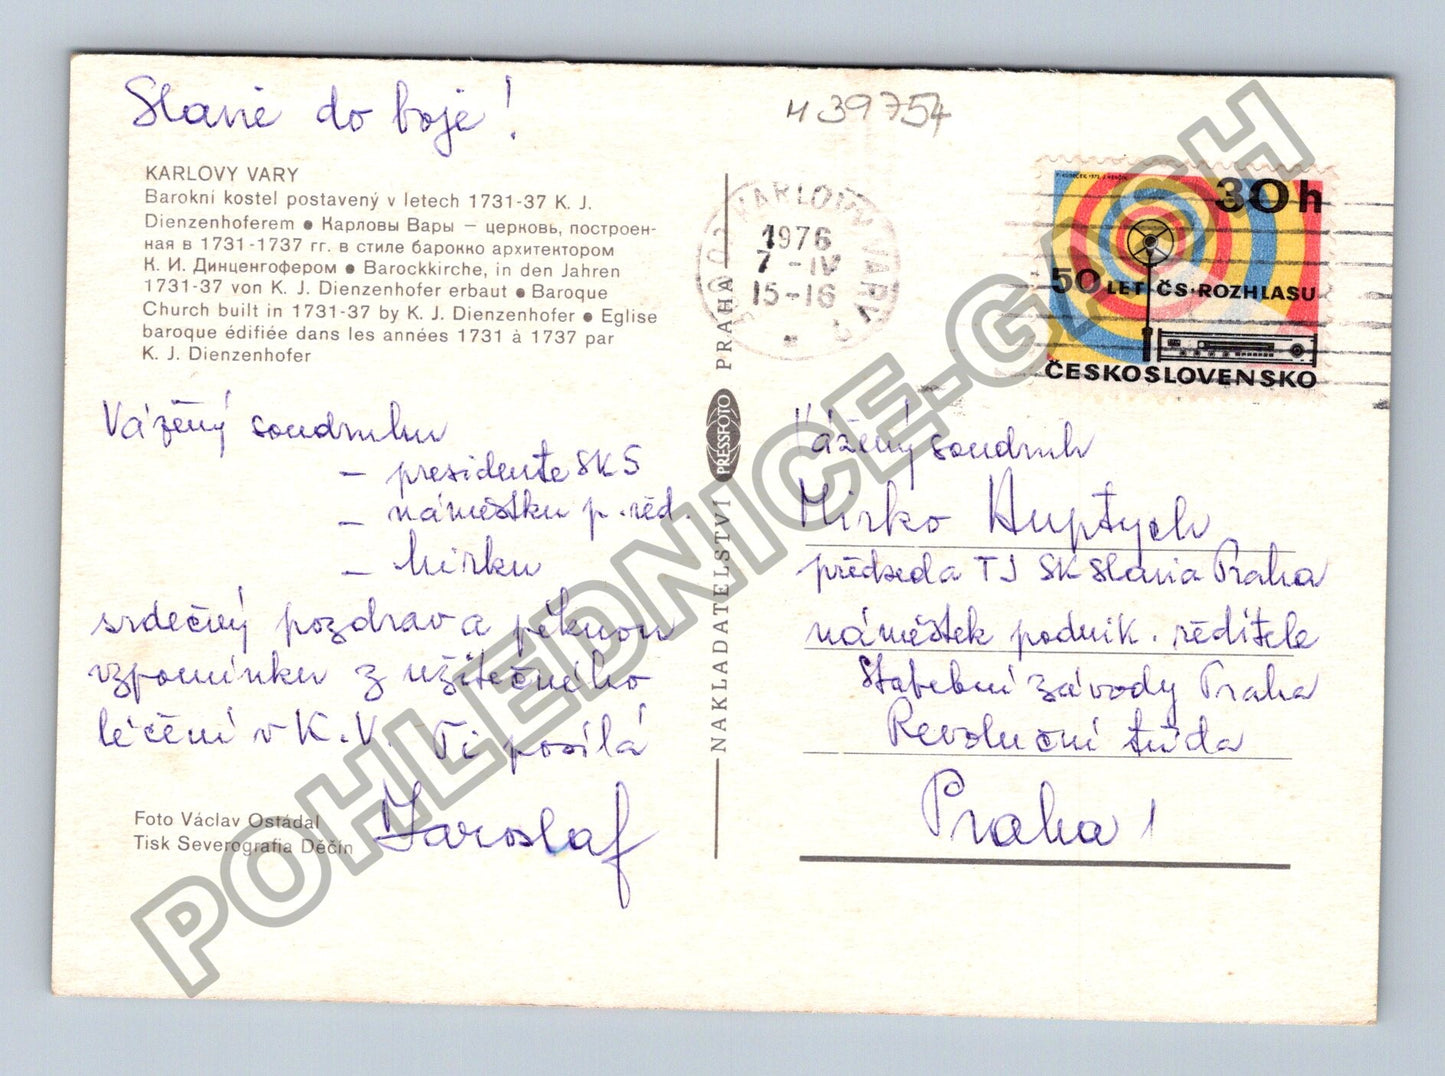 Slavie do boje!
И39754
KARLOVY VARY
Barokní kostel postavený v letech 1731-37 K. J.
Dienzenhoferem ● Карловы Вары — церковь, построен-
ная в 1731-1737 гг. в стиле барокко архитектором
К. И. Динценгофером ● Barockkirche, in den Jahren
1731-37 von K. J. Dienzenhofer erbaut ● Baroque
Church built in 1731-37 by K. J. Dienzenhofer ● Eglise
baroque édifiée dans les années 1731 à 1737 par
K. J. Dienzenhofer
Vážený soudruhu
– presidente SKS
– náměstku p. řed.
– Mirku
srdečný pozdrav a pěknou
vzpomínku z užitečného
léčení v K.V. Ti posílá
Jaroslaf
Foto Václav Ostádal
Tisk Severografia Děčín
NAKLADATELSTVÍ PRESSFOTO PRAHA
KARLOVY VARY
1976
7-IV
15-16
30h
50 LET ČS. ROZHLASU
ČESKOSLOVENSKO
Vážený soudruh
Mirko Huptych
předseda TJ SK Slavia Praha
náměstek podnik. ředitele
Stavební závody Praha
Revoluční třída
Praha 1
POHLEDNICE-GASH